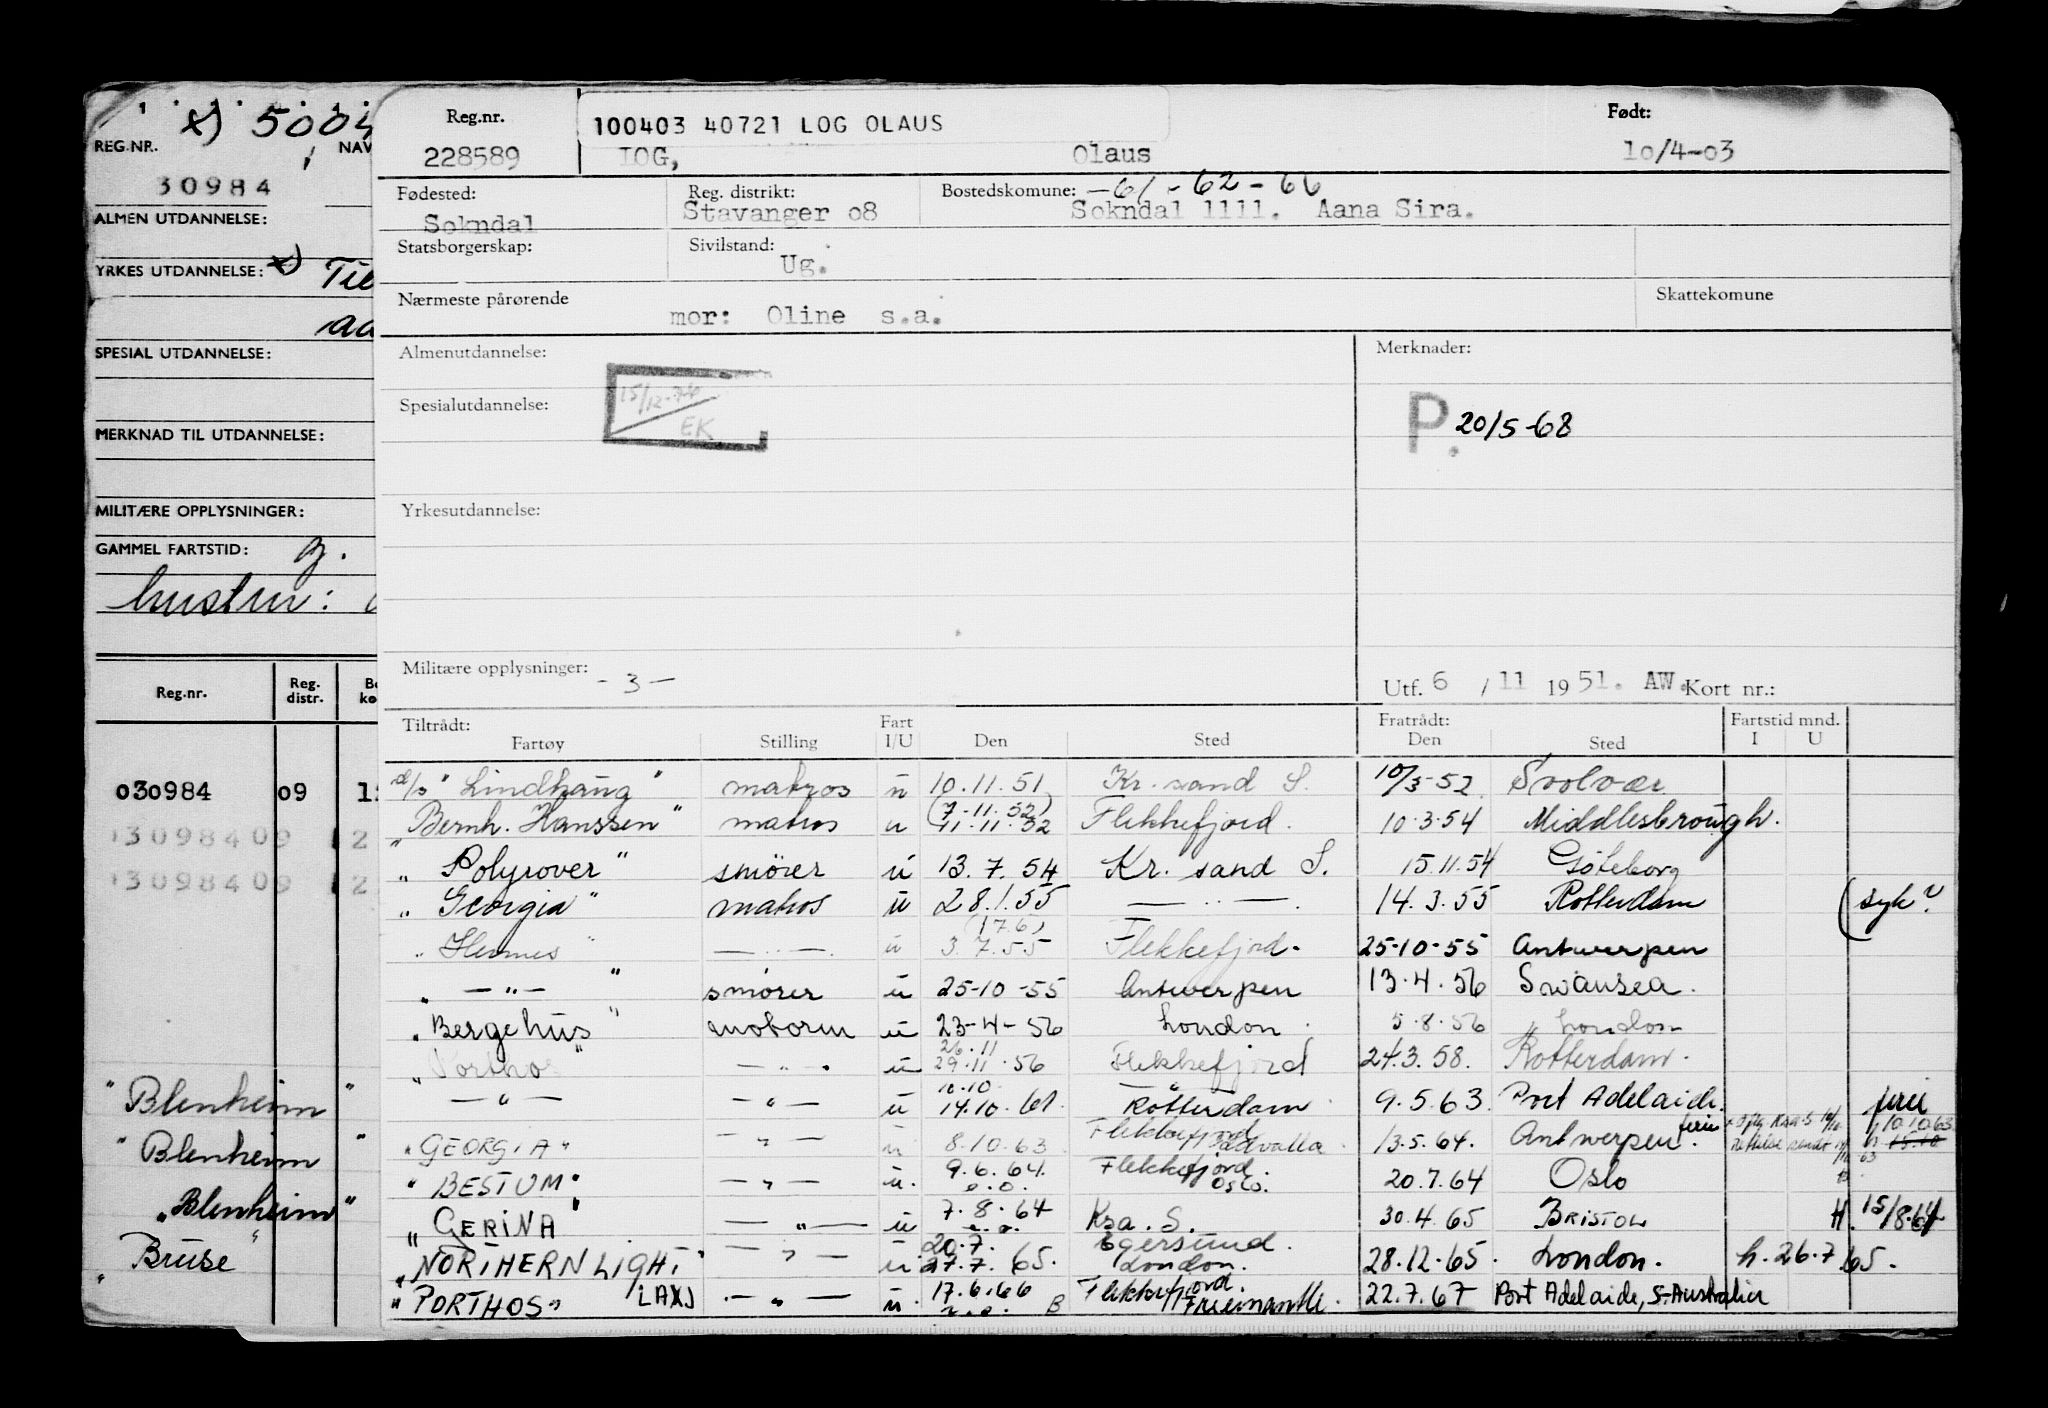 x) 5004
REG.NR. NAV
30984
ALMEN UTDANNELSE:
YRKES UTDANNELSE: x)
SPESIAL UTDANNELSE:
MERKNAD TIL UTDANNELSE:
MILITÆRE OPPLYSNINGER:
GAMMEL FARTSTID:
hustru:
Reg.nr. Reg. distr.
030984 09
13098409 2
13098409 2
"Blenheim"
"Blenheim"
"Blenheim"
"Bruse"
Reg.nr. 100403 40721 LOG OLAUS Født:
228589 LOG, Olaus 10/4-03
Fødested: Reg. distrikt: Bostedskomune: -61-62-66
Sokndal Stavanger 08 Sokndal 1111. Aana Sira.
Statsborgerskap: Sivilstand:
Ug.
Nærmeste pårørende Skattekomune
mor: Oline s.a.
Almenutdannelse: Merknader:
15/12-74
EK
Spesialutdannelse: P. 20/5-68
Yrkesutdannelse:
Militære opplysninger: -3- Utf. 6 / 11 1951. AW. Kort nr.:
Tiltrådt: Fart Fratrådt: Fartstid mnd.
Fartøy Stilling I/U Den Sted Den Sted I U
d/s "Lindhaug" matros u 10.11.51 Kr. sand S. 10/3-52 Svolvær
"Bernh. Hanssen" matros u (7-11.52) 11.11.52 Flekkefjord. 10.3.54 Middlesbrough.
" Polyrover" smører u 13.7.54 Kr. sand S. 15.11.54 Göteborg
" Georgia" matros u 28.1.55 — " —. 14.3.55 Rotterdam (syk?
" Hermes" — " —. u (17.6) 3.7.55 Flekkefjord. 25-10-55 Antwerpen
" — " — " smører u 25-10-55 Antwerpen 13.4.56 Swansea.
"Bergehus" motorm u 23-4-56 London. 5.8.56 London
"Porthos" — " — u 26.11 29.11.56 Flekkefjord 24.3.58. Rotterdam.
— " — — " — u 10.10 14.10.61 Rotterdam 9.5.63. Port Adelaide. ferie
"GEORGIA" — " — u 8.10.63 Flekkefjord Uddevalla 13.5.64. Antwerpen. ferie 10.10.63
"BESTUM" — " — u. 9.6.64. Flekkefjord. Oslo. 20.7.64 Oslo
"GERINA" — " — u 7.8.64 Krsa. S. 30.4.65 BRISTOL H. 15/8.64
"NORTHERN LIGHT" — " — u. 20.7. 27.7.65. Egersund. London. 28.12.65. London. h. 26.7.65.
"PORTHOS" LAXJ — " — u. 17.6.66 B Flekkefjord. 22.7.67 Port Adelaide, S-Australia